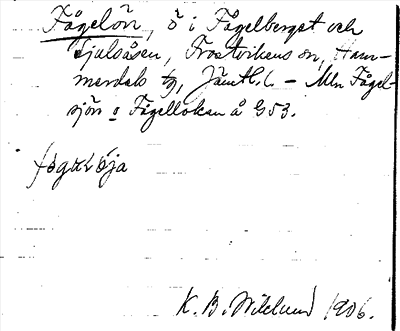 Fågelön, ö i Fågelberget och
Hjulsåsen, Frostvikens sn, Ham-
merdals tg, Jämtl. l. – Mln Fågel-
sjön o Fågelloken å G53.
K. B. Wiklund 1906.